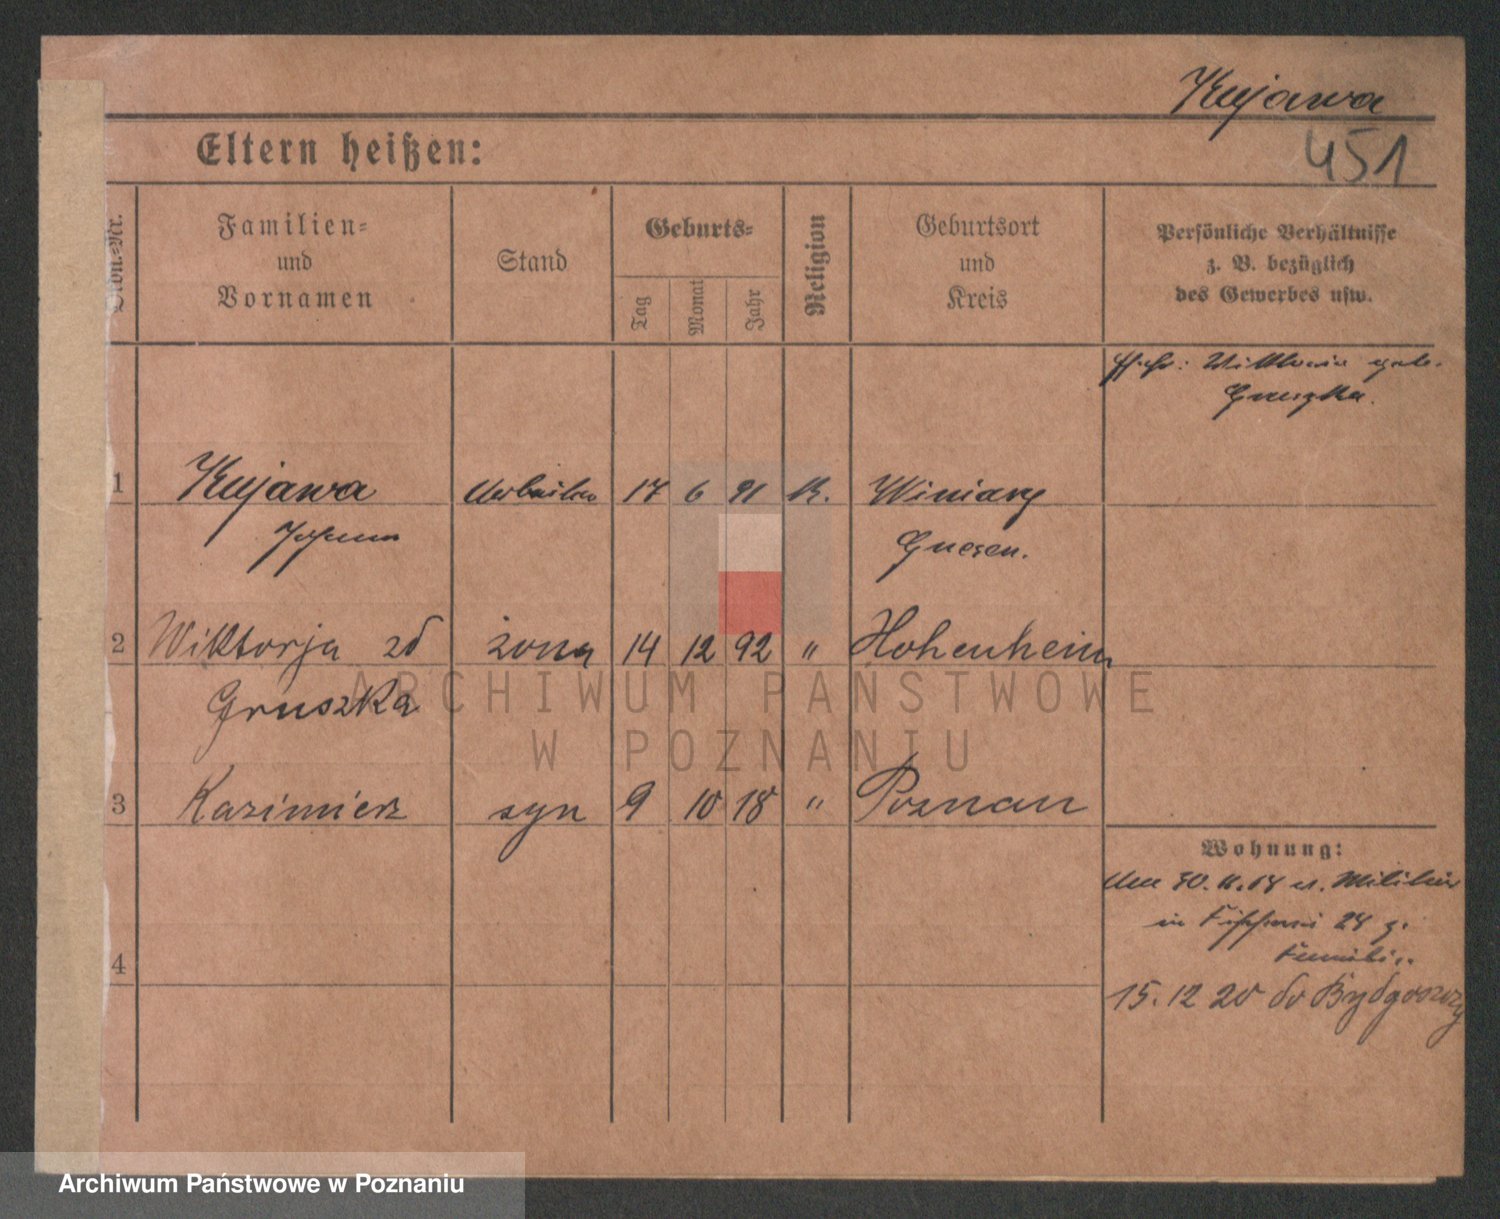 Kujawa
451
Eltern heißen:
Nr.
Familien-
und
Vornamen
Stand
Geburts-
Tag
Monat
Jahr
Religion
Geburtsort
und
Kreis
Persönliche Verhältnisse
z. B. bezüglich
des Gewerbes usw.
Ehefr: Viktoria geb.
Gruszka.
1 Kujawa Arbeiter 17 6 91 K. Winiary
Johann Gnesen.
2 Wiktorja zd żona 14 12 92 " Hohenheim
Gruszka
3 Kazimierz syn 9 10 18 " Poznan
Wohnung:
30. 11. 18 v. Militär
in 28 z.
Familie.
4
15. 12 20 do Bydgoszczy
ARCHIWUM PAŃSTWOWE
W POZNANIU
Archiwum Państwowe w Poznaniu